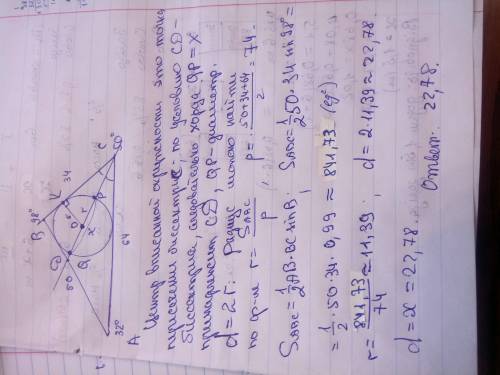 B 98°
D
K
34
C
50°
50
O
r
P
Q
x
64
32°
A
Центр вписанной окружности это точка
пересечения биссектрис. по условию CD -
биссектриса, следовательно, хорда QP = X
принадлежит CD, QP - диаметр.
d = 2r. Радиус можно найти
по ф-ле r = S△ABC / p  p = (50+34+64) / 2 = 74.
S△ABC = 1/2 AB · BC sin B; S△ABC = 1/2 50 · 34 sin 98° =
= 1/2 · 50 · 34 · 0,99 ≈ 841,73 (ед²)
r = 841,73 / 74 ≈ 11,39 d = 2 · 11,39 ≈ 22,78.
d = x = 22,78. Ответ: 22,78.